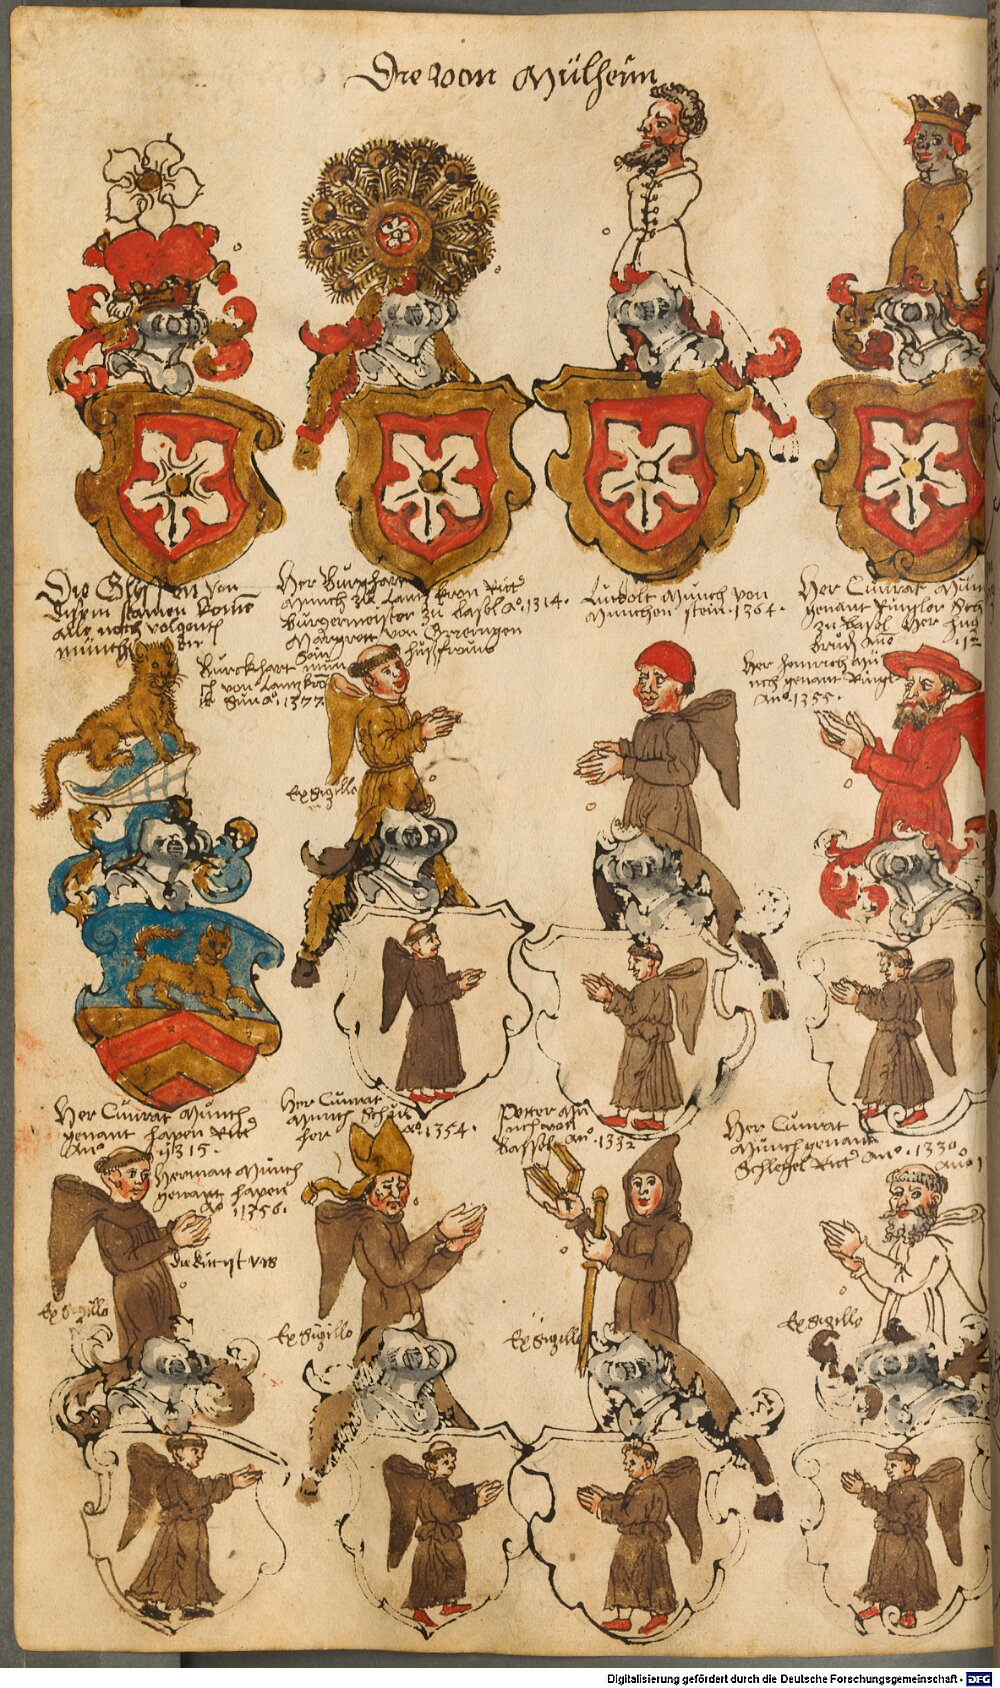 Die von Mülheim
Die
von
disem stamen komē
alle noch volgent
münch
Her Burghart
Münch zů Lantzkron Rittr
Burgermeister zů Basel Aō. 1314.
Margret von Grieningen
Sein hussfrauw
Lütolt Münch von
Münchenstein. 1364.
Her Cunrat Mün
genant Pingler
zu Basel Her Hug
brud Anō
Burckhart mün
ch von Lantzkrō
Sun Aō. 1377.
Her Heinrich Mü
nch genant Ringl
Anō. 1355.
Ex Sigillo
Her Cunrat Münch
genant Hapen Rittr
Anō 1315.
Her Cunrat
Münch Schůls
her Aō. 1354.
Petter Mü
nch von
Bassel Anō. 1332
Her Cunrat
Münch genant
Schlegel Rittr Anō. 1330
Anō 1
Herman Münch
genant Hapen
Aō 1356.
Ex Sigillo
Ex Sigillo
Ex Sigillo
Ex Sigillo
Digitalisierung gefördert durch die Deutsche Forschungsgemeinschaft - DFG